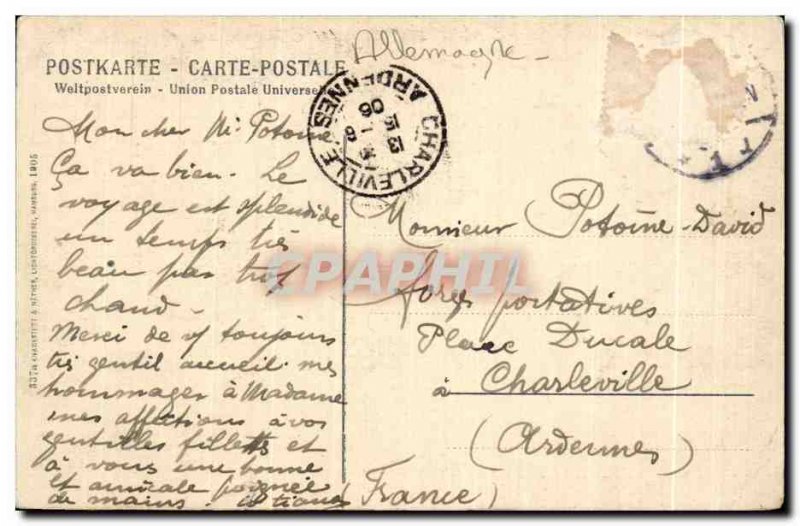 Allemagne
POSTKARTE - CARTE-POSTALE
Weltpostverein - Union Postale Universelle
Mon cher Mr Potoine
Ça va bien. Le
voyage est splendide
un temps très
beau pas trop
chaud.
Merci de vs toujours
très gentil accueil mes
hommages à Madame
mes affections à vos
gentilles fillettes et
à vous une bonne
et amicale poignée
de mains.
CHARLEVILLE
ARDENNES
13 15
06
Monsieur Potoine-David
forges portatives
Place Ducale
à Charleville
(Ardennes)
(France)
CPAPHIL
HAMBURG, 1905